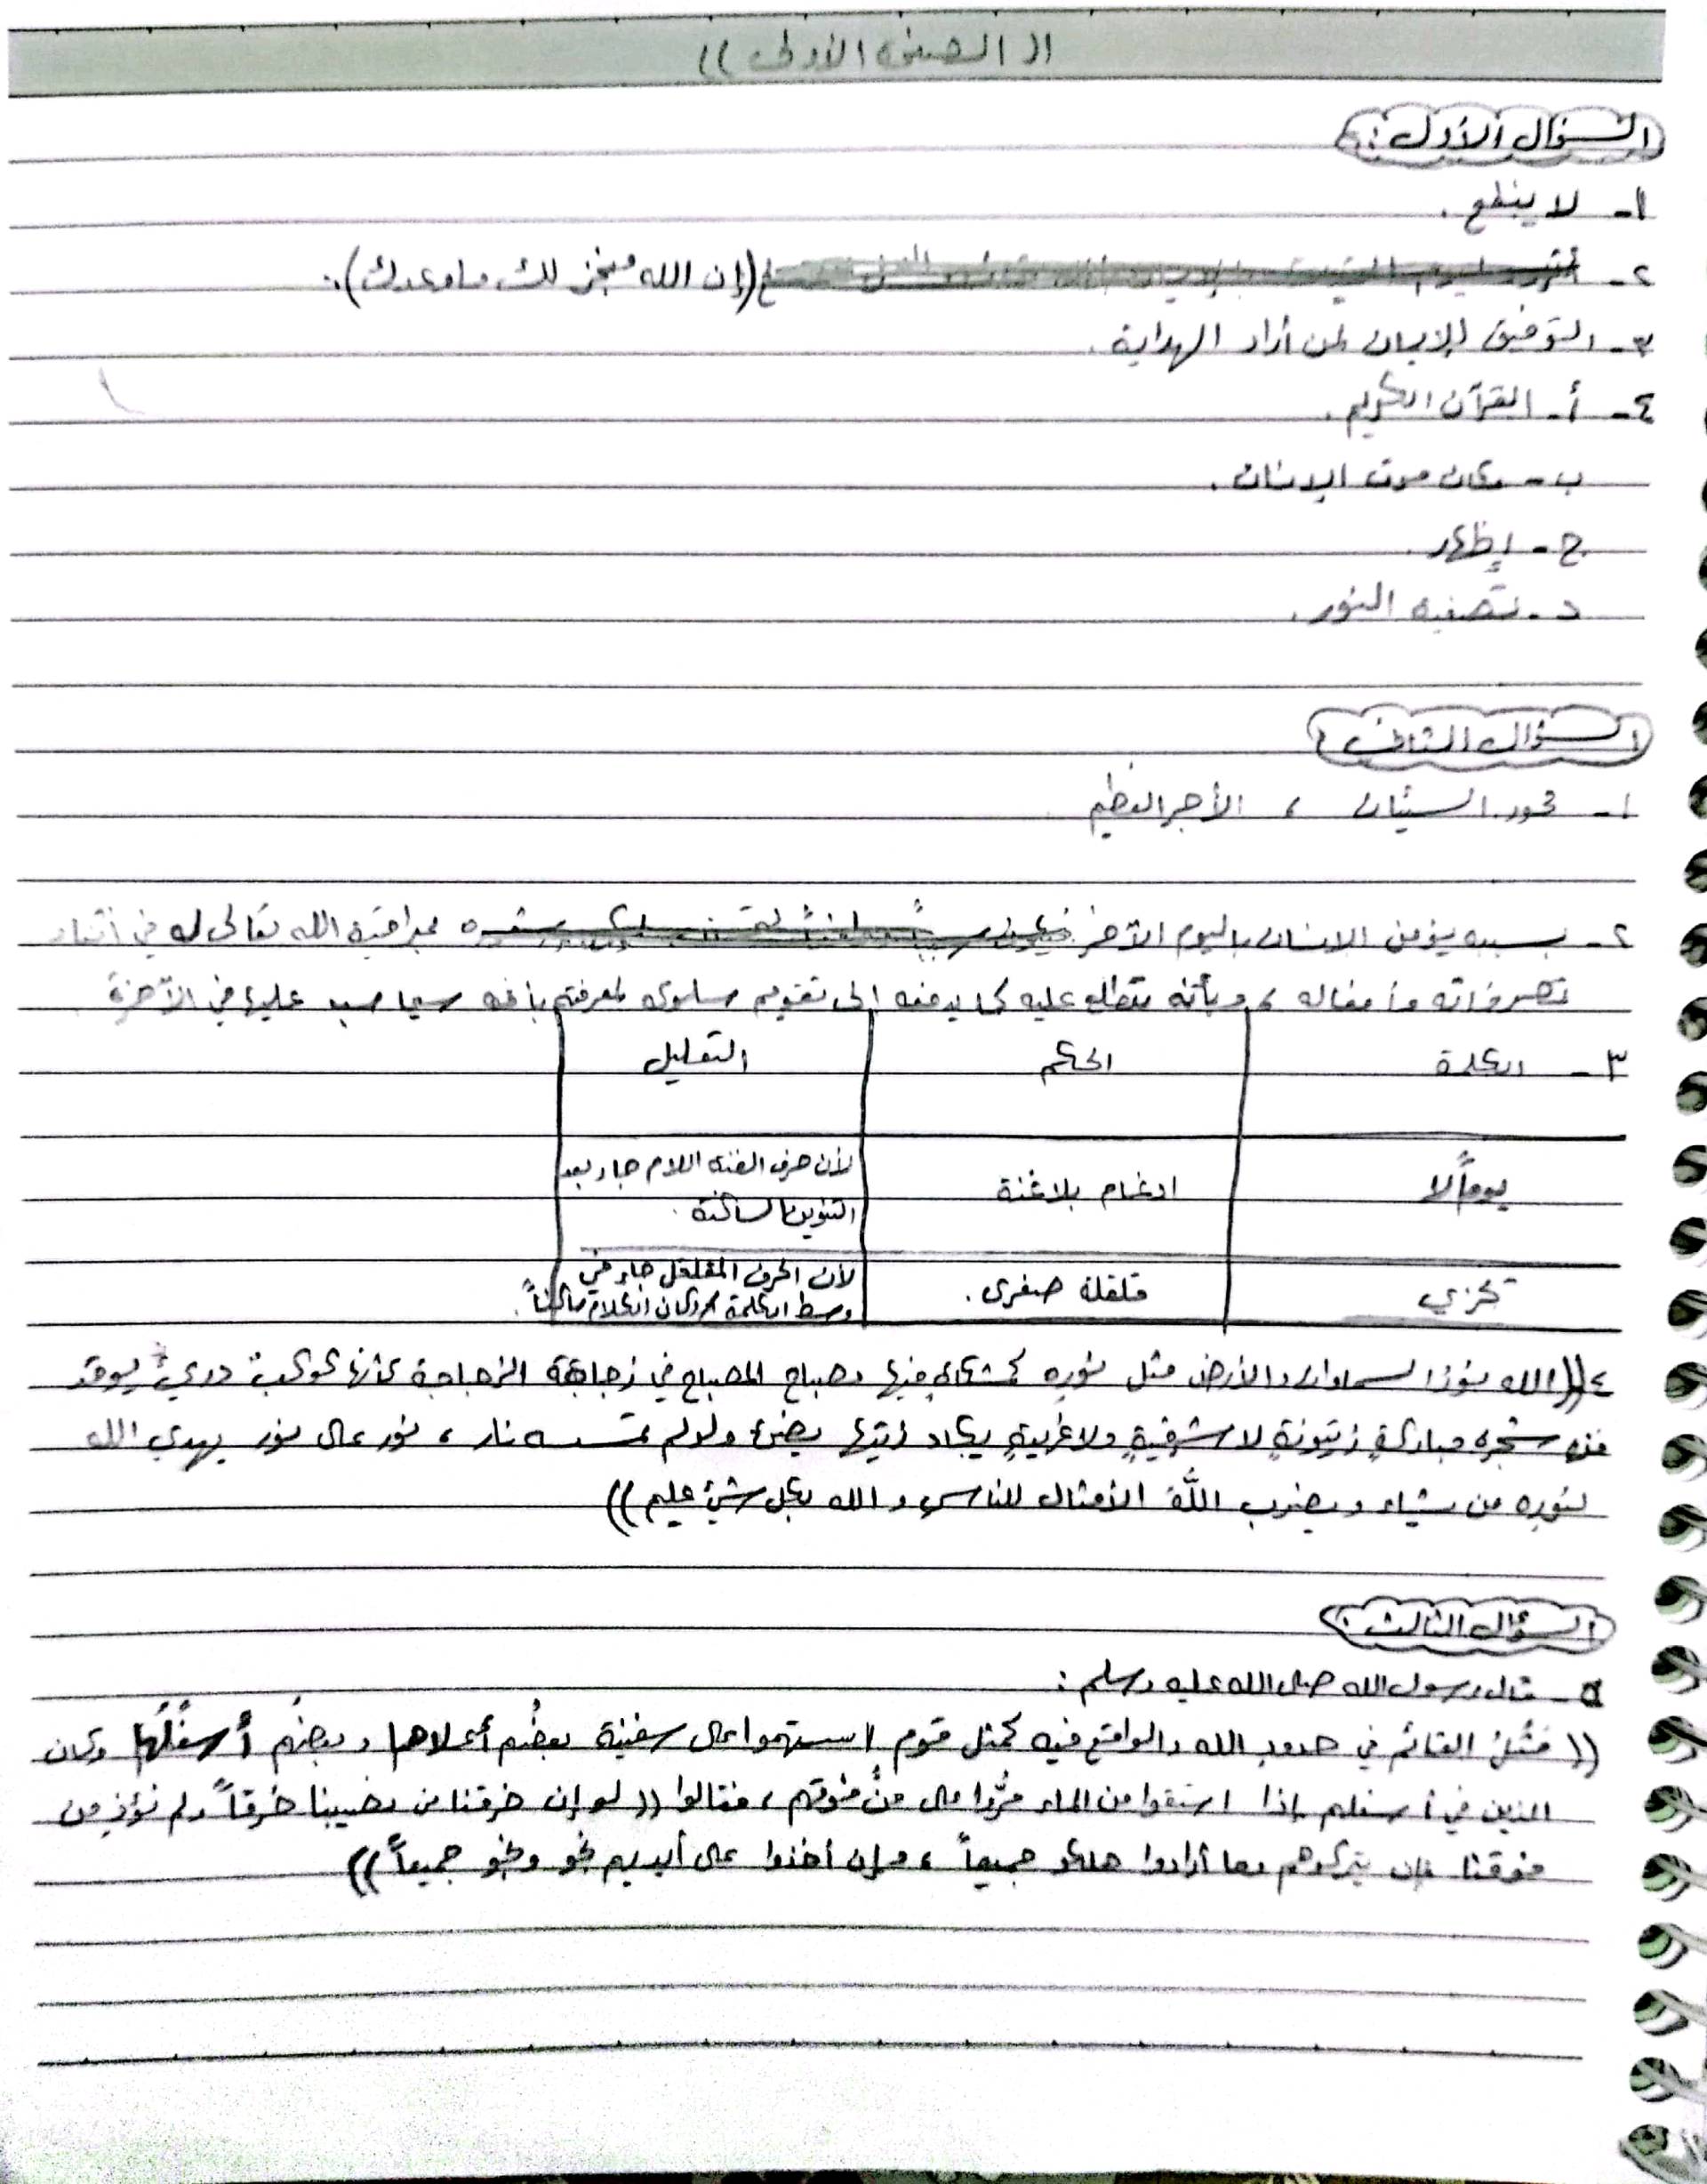 (( الصفحة الأولى ))
السؤال الأول :
١- لا ينفع .
٢- (إن الله منجز لك ما وعدك).
٣- التوفيق للإيمان لمن أراد الهداية .
٤- أ- القرآن الكريم .
ب - مكان موت الإنسان .
ج - إظهار
د - تصفية النور .
السؤال الثاني :
١- السيئات ، الأجر العظيم
٢- يؤمن الإنسان باليوم الآخر بمراقبة الله تعالى له في أثناء
تصرفاته وأفعاله ، وبأنه مطلع عليه كما يدفعه إلى تقويم سلوكه لمعرفته بأنه سيحاسب عليها في الآخرة .
٣ - الكلمة الحكم التعليل
يوماً لا ادغام بلا غنة لأن حرف الغنة اللام جاء بعد
التنوين الساكنة .
تجزي قلقلة صغرى . لأن الحرف المقلقل جاء في
وسط الكلمة وكان ساكناً .
٤ ((الله نور السماوات والأرض مثل نوره كمشكاةٍ فيها مصباح المصباح في زجاجة الزجاجة كأنها كوكبٌ دري يوقد
من شجرة مباركةٍ زيتونةٍ لا شرقيةٍ ولا غربيةٍ يكاد زيتها يضيء ولو لم تمسسه نار ، نور على نور يهدي الله
لنوره من يشاء ويضرب اللهُ الأمثال للناس والله بكل شيء عليم ))
السؤال الثالث :
٥- قال رسول الله صلى الله عليه وسلم :
(( مثلُ القائم في حدود الله والواقع فيه كمثل قوم استهموا على سفينة بعضُهم أعلاها وبعضهُم أسفلُها وكان
الذين في أسفلهم إذا استقوا من الماء مرُّوا على منْ فوقهم ، فقالوا (( لو إن خرقنا من نصيبنا خرقاً ولم نؤذ من
فوقنا فإن يتركوهم وما أرادوا هلكو جميعاً ، وإن أخذوا على أيديهم نجو ونجو جميعاً ))